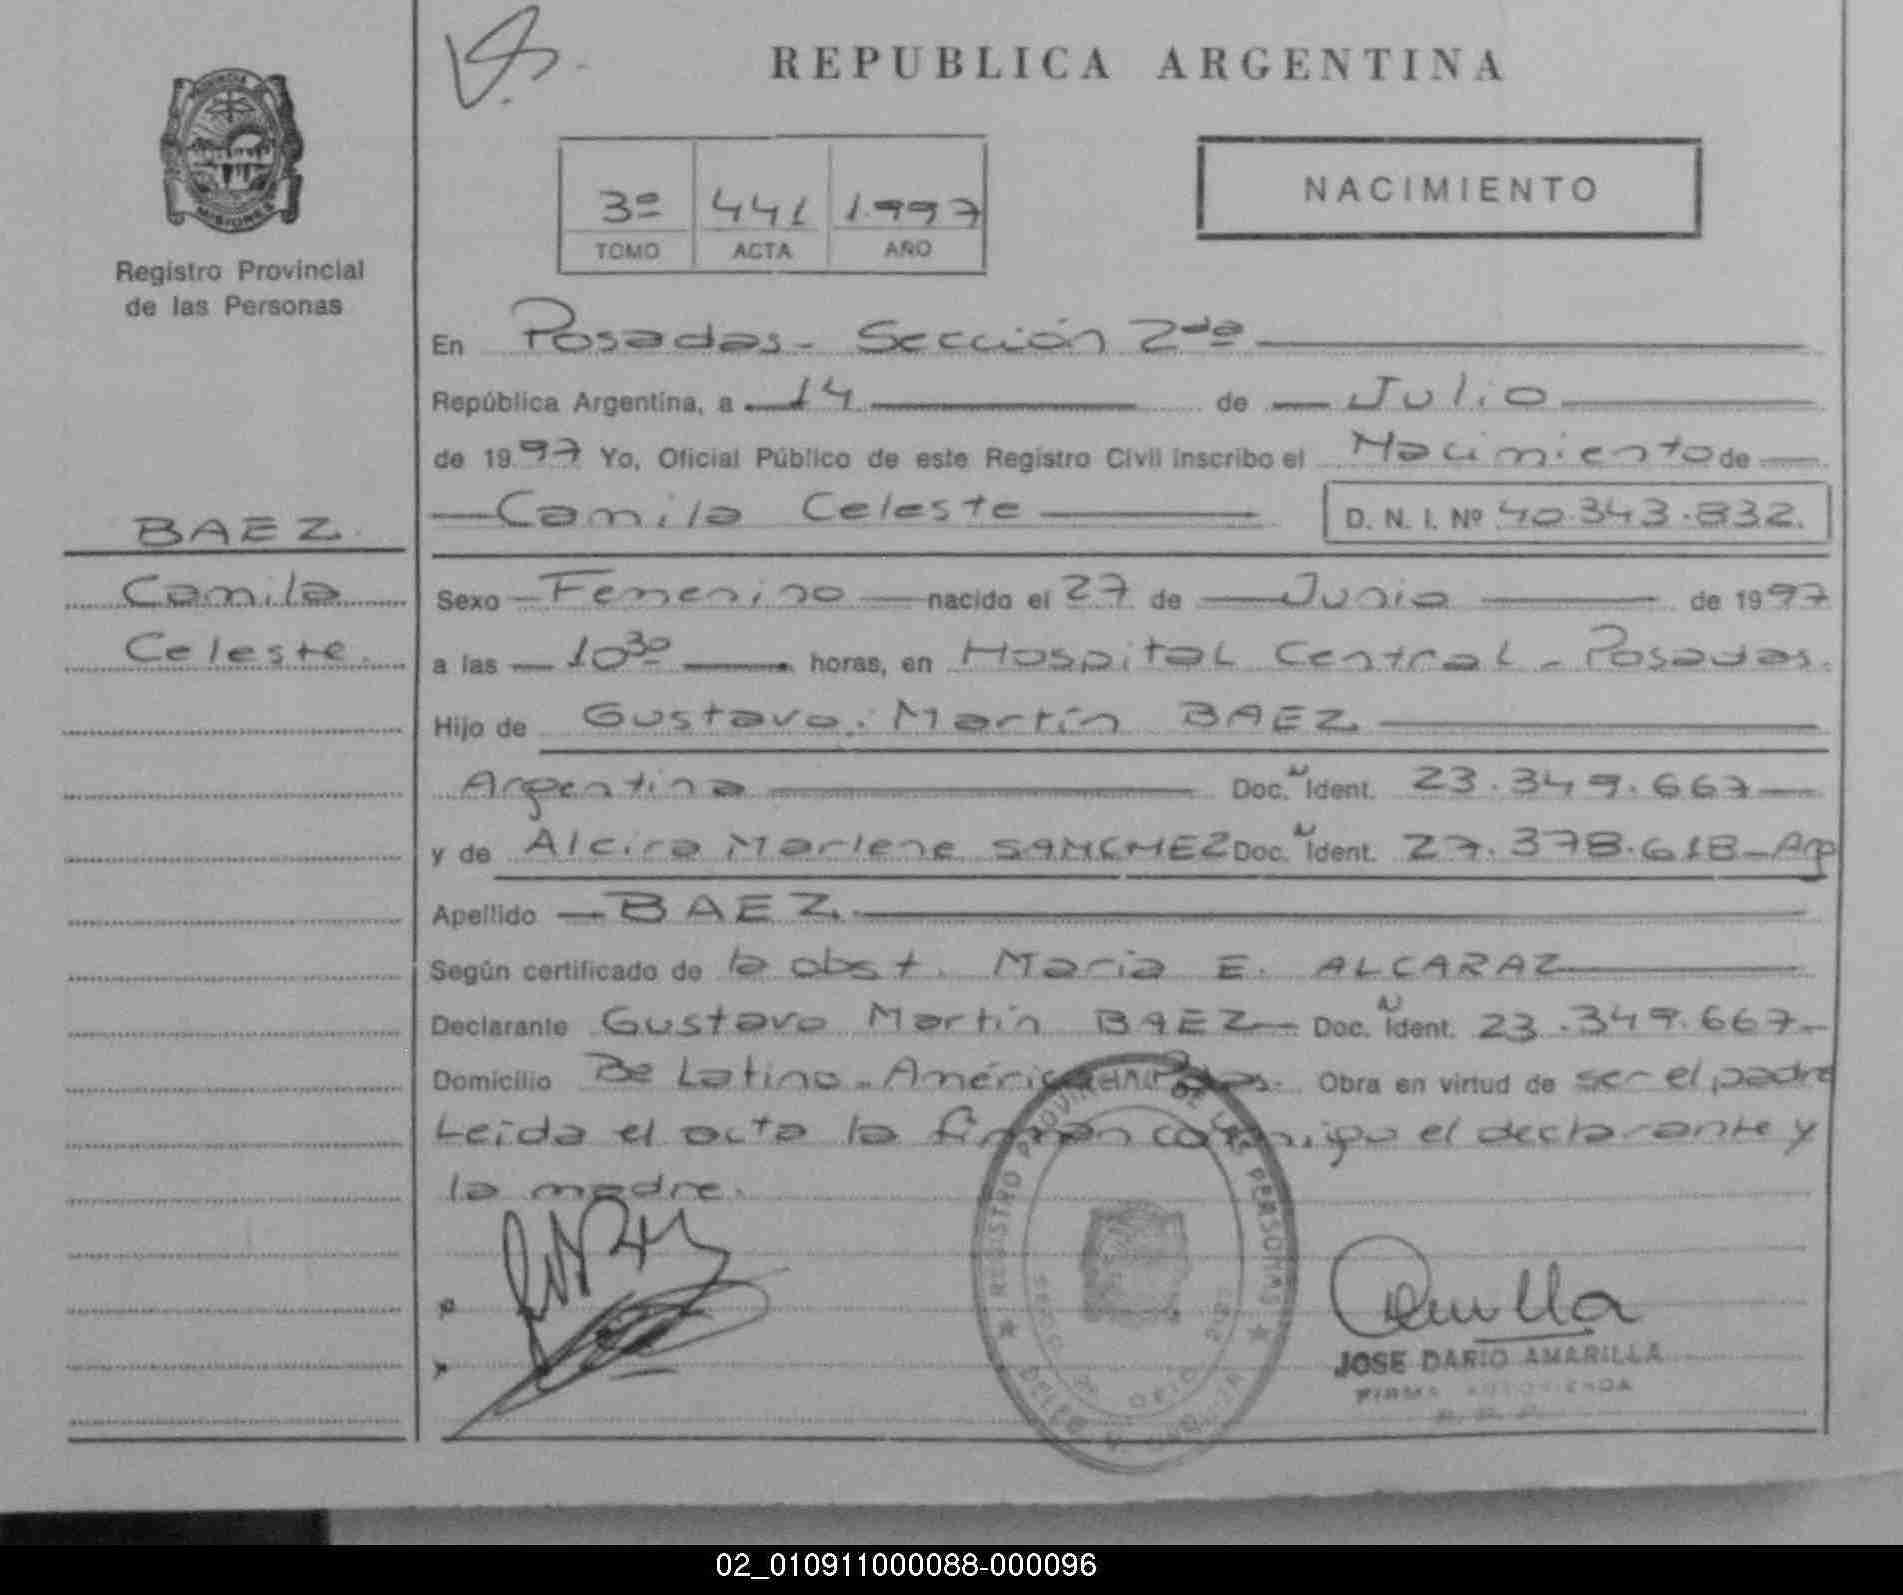 REPUBLICA ARGENTINA
PROVINCIA
MISIONES
Registro Provincial
de las Personas
3º 441 1.997
TOMO ACTA AÑO
NACIMIENTO
En Posadas - Sección 2da
República Argentina, a 14 de Julio
de 1997 Yo, Oficial Público de este Registro Civil inscribo el Nacimiento de
Camila Celeste D. N. I. Nº 40.343.832.
BAEZ
Camila
Celeste.
Sexo Femenino nacido el 27 de Junio de 1997
a las 10 30 horas, en Hospital Central - Posadas.
Hijo de Gustavo Martín BAEZ
Argentina Doc. N Ident. 23.349.667
y de Alcira Marlene SANCHEZ Doc. N Ident. 27.378.618 - Arg
Apellido BAEZ
Según certificado de la obst. María E. ALCARAZ
Declarante Gustavo Martín BAEZ Doc. N Ident. 23.349.667
Domicilio Bº Latino-América Pdas. Obra en virtud de ser el padre
Leída el acta la firman conmigo el declarante y
la madre.
REGISTRO PROVINCIAL DE LAS PERSONAS
JOSE DARIO AMARILLA
FIRMA AUTORIZADA
02_010911000088-000096